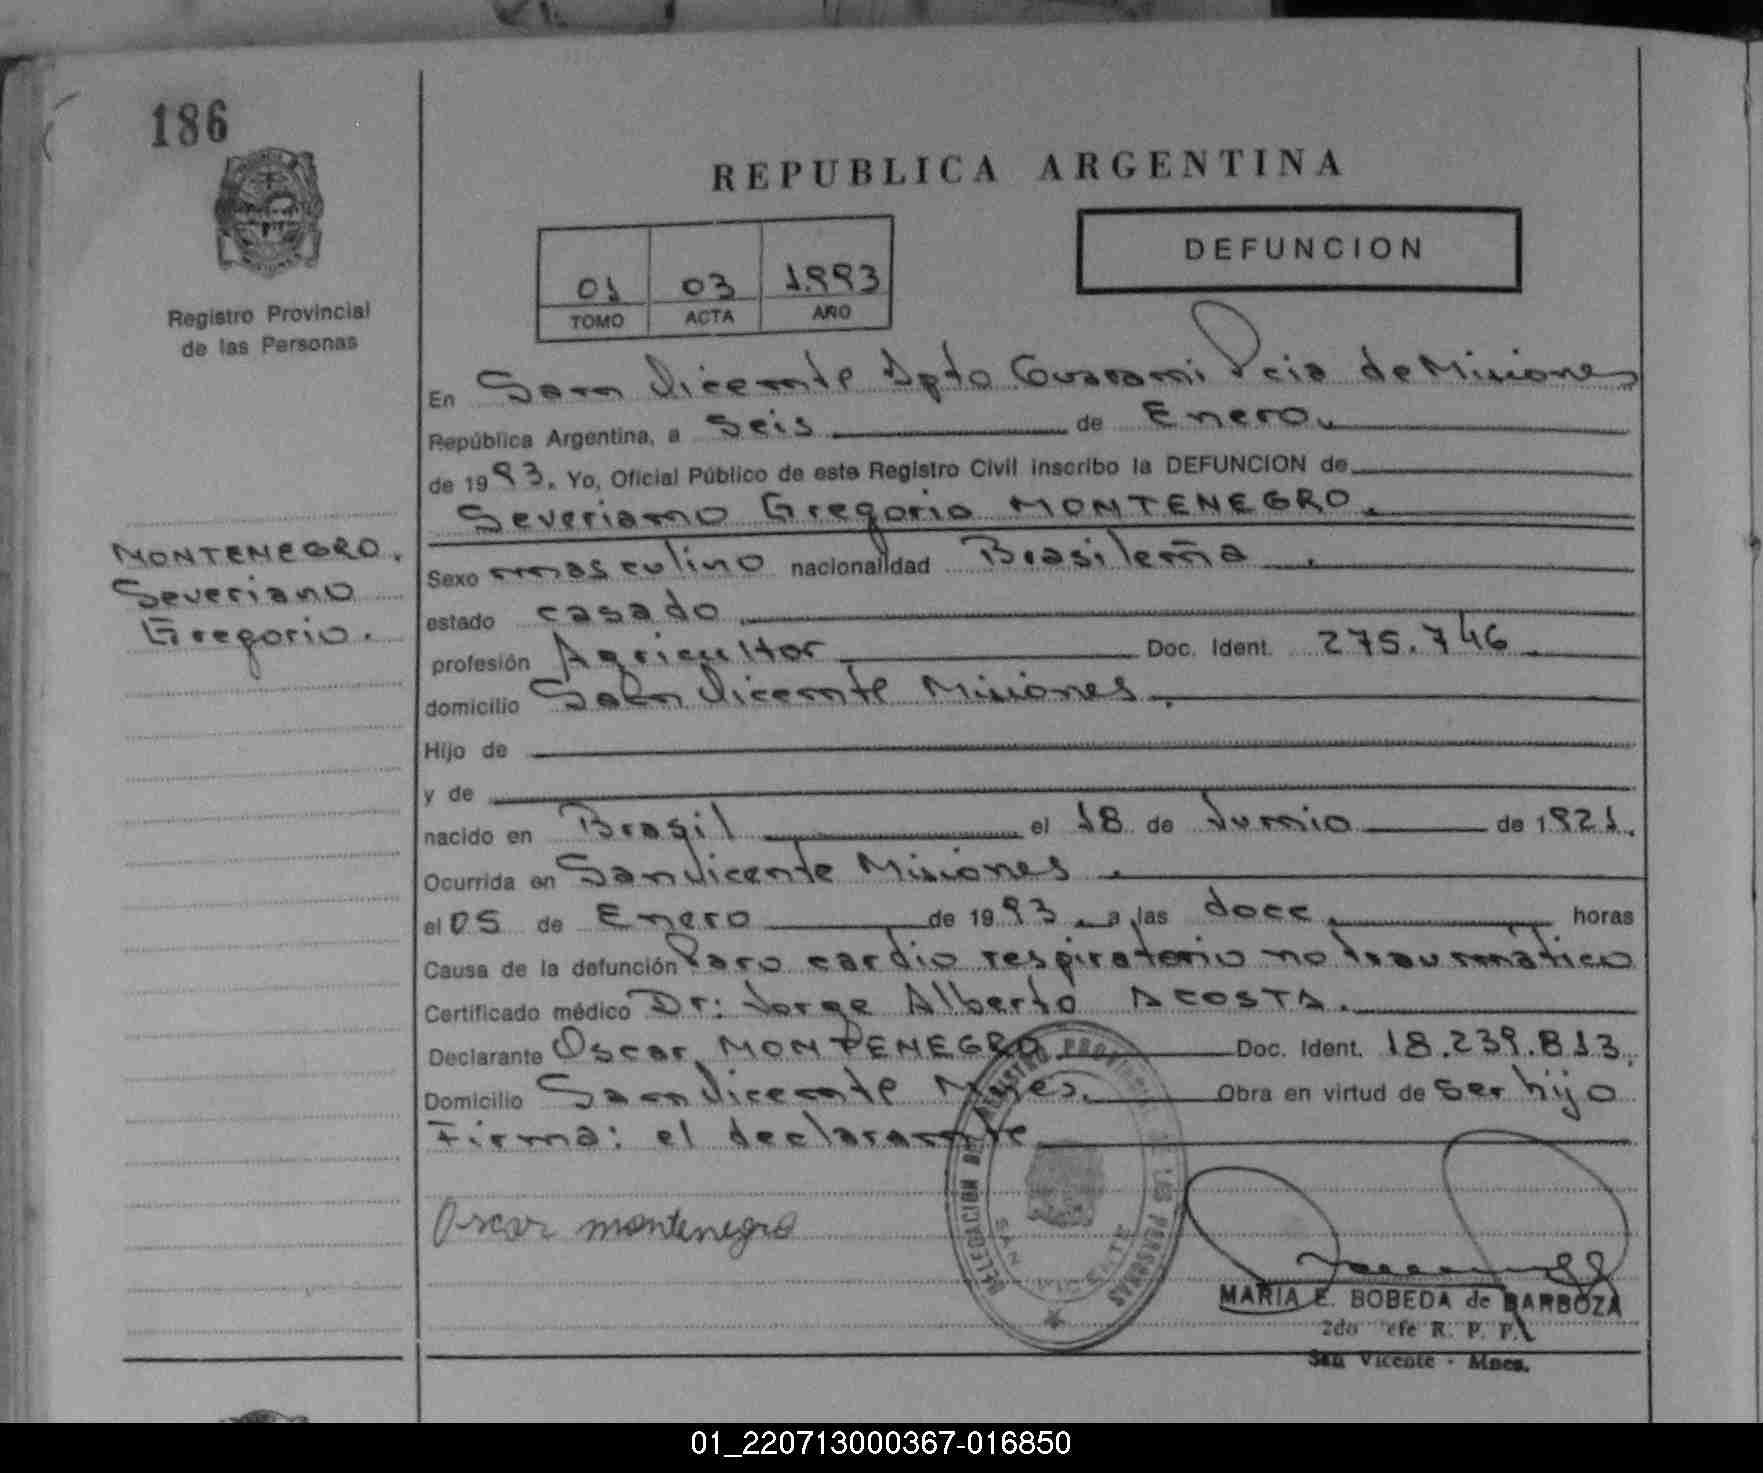 186
REPUBLICA ARGENTINA
DEFUNCION
01 03 1993
TOMO ACTA AÑO
Registro Provincial
de las Personas
En San Vicente Dpto Guarani Pcia de Misiones
República Argentina, a Seis de Enero.
de 1993. Yo, Oficial Público de este Registro Civil inscribo la DEFUNCION de
Severiano Gregorio MONTENEGRO.
MONTENEGRO.
Severiano
Gregorio.
Sexo masculino nacionalidad Brasileña.
estado casado
profesión Agricultor Doc. Ident. 275.746
domicilio San Vicente Misiones.
Hijo de
y de
nacido en Brasil el 18 de Junio de 1921.
Ocurrida en San Vicente Misiones.
el 05 de Enero de 1993. a las doce. horas
Causa de la defunción Paro cardio respiratorio no traumático
Certificado médico Dr: Jorge Alberto ACOSTA.
Declarante Oscar MONTENEGRO Doc. Ident. 18.239.813.
Domicilio San Vicente Mnes. Obra en virtud de ser hijo
Firma: el declarante
Oscar montenegro
DELEGACION DEL REGISTRO PROVINCIAL DE LAS PERSONAS
SAN VICENTE
MARIA E. BOBEDA de BARBOZA
2do Jefe R. P. P.
San Vicente - Mnes.
01_220713000367-016850